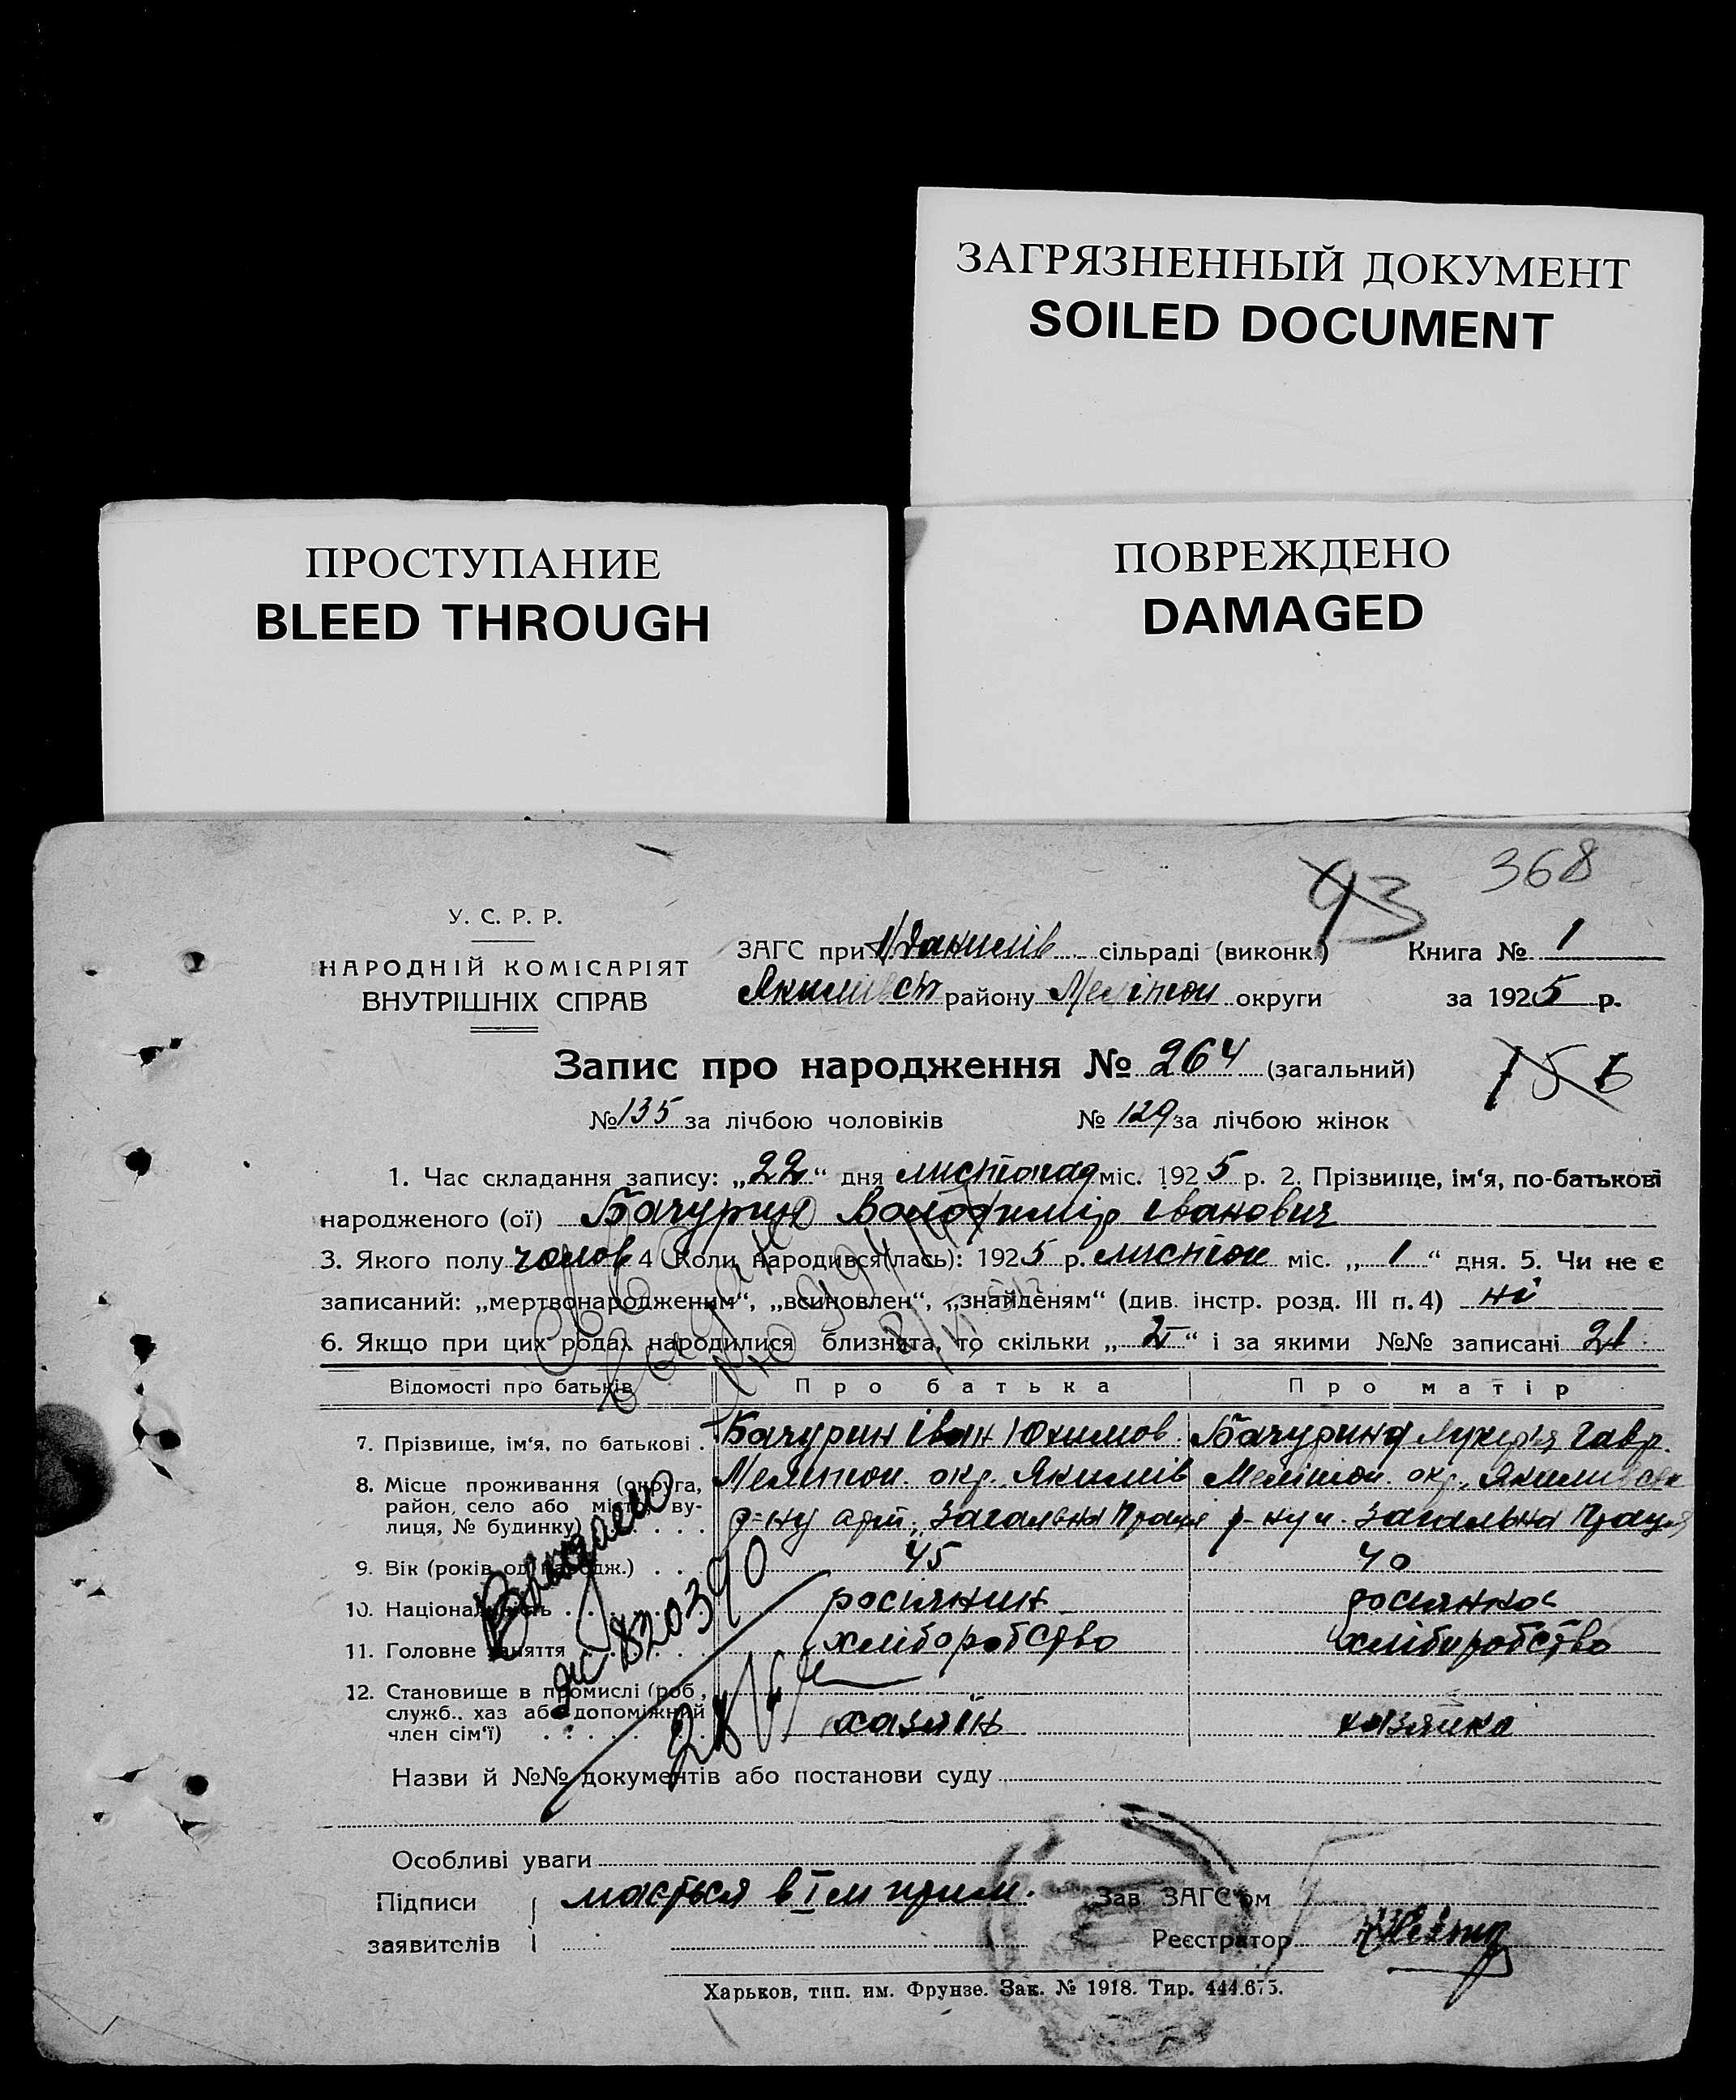 ЗАГРЯЗНЕННЫЙ ДОКУМЕНТ
SOILED DOCUMENT
ПРОСТУПАНИЕ
BLEED THROUGH
ПОВРЕЖДЕНО
DAMAGED
93 368
У. С. Р. Р.
НАРОДНІЙ КОМІСАРІЯТ
ВНУТРІШНІХ СПРАВ
ЗАГС при Данилів сільраді (виконк.) Книга № 1
Якимівськ району Меліток округи за 1925 р.
Запис про народження № 264 (загальний)
156
№ 135 за лічбою чоловіків № 129 за лічбою жінок
1. Час складання запису: „22" дня листопад міс. 1925 р. 2. Прізвище, ім'я, по-батькові
народженого (ої) Бачурин Володимір Іванович
3. Якого полу чолов 4 Коли народився(лась): 1925 р. листоп міс. „1" дня. 5. Чи не є
записаний: „мертвонародженим", „всиновлен", „знайденям" (див. інстр. розд. III п. 4) ні
6. Якщо при цих родах народилися близнята, то скільки „II" і за якими №№ записані 21
Відомості про батьків Про батька Про матір
7. Прізвище, ім'я, по батькові Бачурин Іван Юхимов. Бачурина Лукерія Гавр.
8. Місце проживання (округа, район, село або місто, вулиця, № будинку) Мелітоп. окр. Якимів Мелітоп. окр. Якимівськ
р-ну арт. Загальна Праця р-ну Загальна Праця
9. Вік (років од народж.) 45 40
10. Національність росіянин росіянка
11. Головне заняття хліборобство хліборобство
12. Становище в промислі (роб., служб., хаз. або допоміжний член сім'ї) хазяїн хазяйка
Видано
820390
Назви й №№ документів або постанови суду
Особливі уваги
Підписи заявителів мається в I м прим. Зав. ЗАГС'ом
Реєстратор
Харьков, тип. им. Фрунзе. Зак. № 1918. Тир. 444.675.